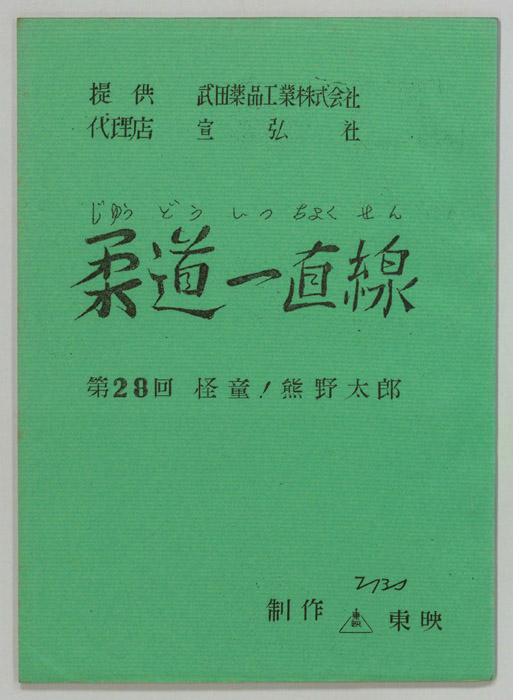 提供 武田薬品工業株式会社
代理店 宣弘社
じゅう どう いっ ちょく せん
柔道一直線
第28回 怪童!熊野太郎
制作 東映 東映